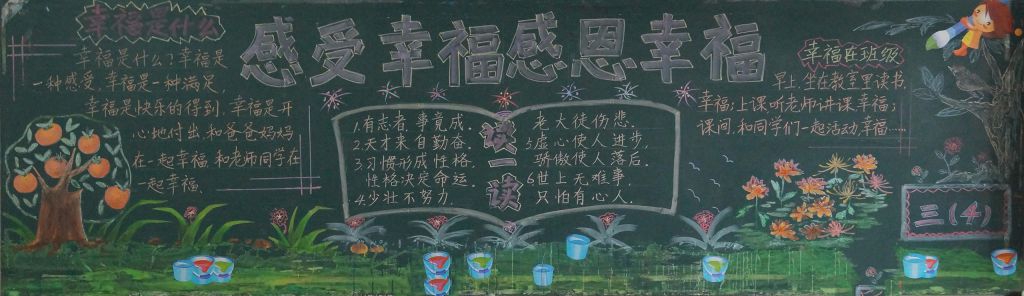 感受幸福感恩幸福
幸福是什么
幸福是什么?幸福是
一种感受,幸福是一种满足,
幸福是快乐的得到,幸福是开
心地付出,和爸爸妈妈
在一起幸福,和老师同学在
一起幸福、
读一读
1.有志者,事竟成。
2.天才来自勤奋。
3.习惯形成性格,
性格决定命运。
4.少壮不努力,
老大徒伤悲。
5.虚心使人进步,
骄傲使人落后。
6.世上无难事,
只怕有心人。
幸福在班级
早上,坐在教室里读书,
幸福;上课听老师讲课幸福;
课间,和同学们一起活动幸福……
三(4)